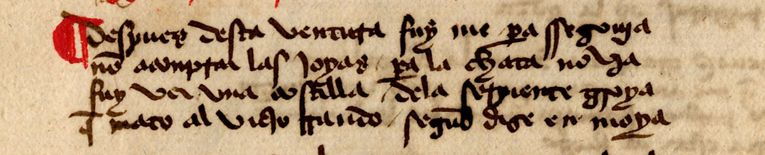 Despues desta ventura fuy me pa ssegouia
no a conprar las joyas pa la chata novia
fuy ver vna costilla dela serpiente groya
q mato al viejo rrando segud dize en moya